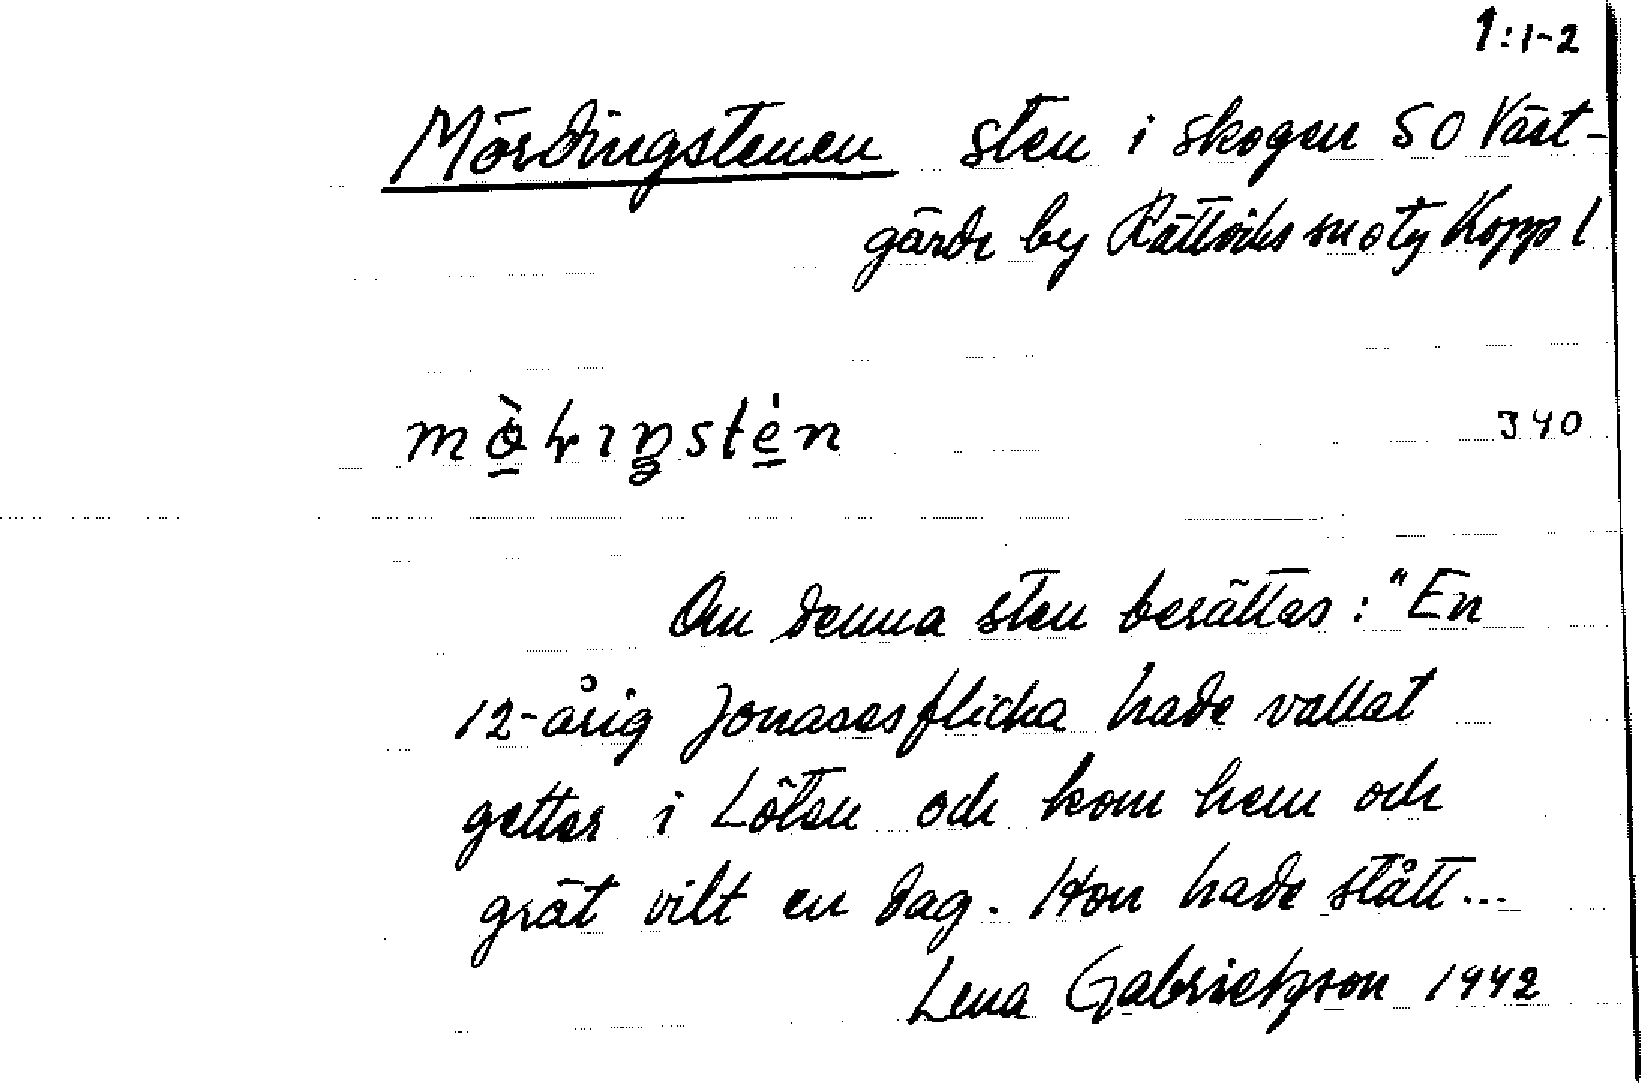 1:1-2
Mördingstenen sten i skogen SO Väst-
gärde by Rättviks sn o tg Kopp l
340
Om denna sten berättas: "En
12-årig Jonasesflicka hade vallat
getter i Löten och kom hem och
grät vilt en dag. Hon hade stått...
Lena Gabrielsson 1942